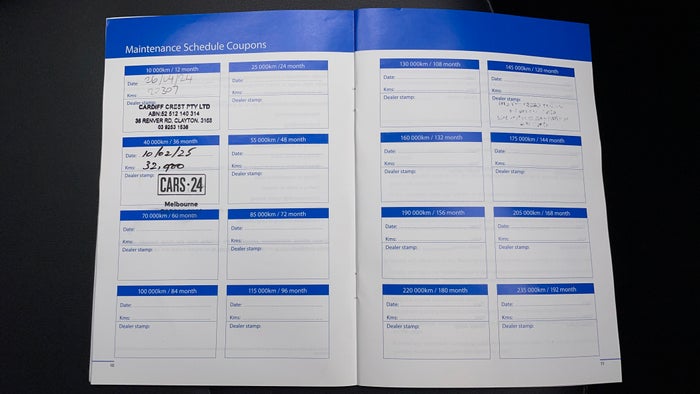 Maintenance Schedule Coupons
10 000km / 12 month
Date: 26/04/24
Kms: 20307
Dealer stamp:
CARDIFF CREST PTY LTD
ABN:52 512 140 314
36 RENVER RD, CLAYTON, 3168
03 9253 1536
25 000km /24 month
Date:
Kms:
Dealer stamp:
40 000km / 36 month
Date: 10/02/25
Kms: 32,900
Dealer stamp:
CARS·24
Melbourne
55 000km / 48 month
Date:
Kms:
Dealer stamp:
70 000km / 60 month
Date:
Kms:
Dealer stamp:
85 000km / 72 month
Date:
Kms:
Dealer stamp:
100 000km / 84 month
Date:
Kms:
Dealer stamp:
115 000km / 96 month
Date:
Kms:
Dealer stamp:
130 000km / 108 month
Date:
Kms:
Dealer stamp:
145 000km / 120 month
Date:
Kms:
Dealer stamp:
160 000km / 132 month
Date:
Kms:
Dealer stamp:
175 000km / 144 month
Date:
Kms:
Dealer stamp:
190 000km / 156 month
Date:
Kms:
Dealer stamp:
205 000km / 168 month
Date:
Kms:
Dealer stamp:
220 000km / 180 month
Date:
Kms:
Dealer stamp:
235 000km / 192 month
Date:
Kms:
Dealer stamp: